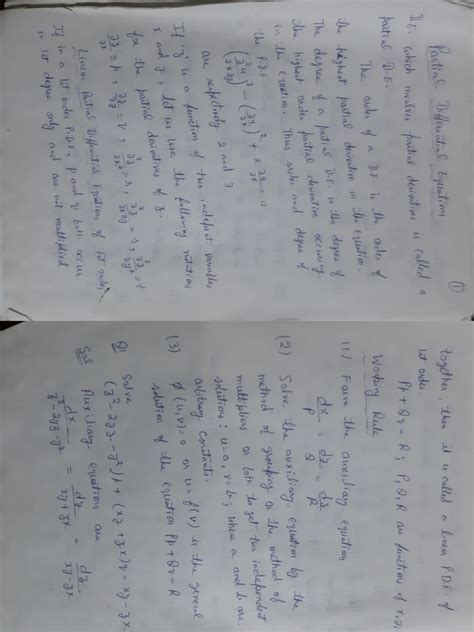 (1)
Partial Differential Equations
D.E. which involves partial derivatives is called a
partial D.E.
The order of a D.E is the order of
the highest partial derivative in the equation.
The degree of a partial D.E is the degree of
the highest order partial derivative occuring
in the equation. Thus order and degree of
the P.D.E
(∂²u/∂x∂y)³ - (∂y/∂x)² + x ∂y/∂x = 0
are respectively 2 and 3
If z is a function of two indepent variables
x and y, let us use the following notations
for the partial derivatives of z.
∂z/∂x = p, ∂z/∂y = q, ∂²z/∂x² = r, ∂²z/∂x∂y = s, ∂²z/∂y² = t
Linear Partial Differential Equation of 1st order
If in a 1st order P.D.E, p and q both occur
in 1st degree only and are not multiplied
together, then it is called a linear P.D.E of
1st order
Pp + Qq = R ; P, Q, R are function of x, y, z
Working Rule
(1) Form the auxiliary equation
dx/P = dy/Q = dz/R
(2) Solve the auxiliary equation by the
method of grouping or the method of
multipliers or both to get two independent
solutions: u = a, v = b; where a and b are
arbitrary constants.
(3) ϕ(u,v) = 0 or u = f(v) is the general
solution of the equation Pp + Qq = R.
Q1 Solve
(z² - 2yz - y²)p + (xy + zx)q = xy - zx
Sol Auxiliary equation are
dx/z² - 2yz - y² = dy/xy + zx = dz/xy - zx